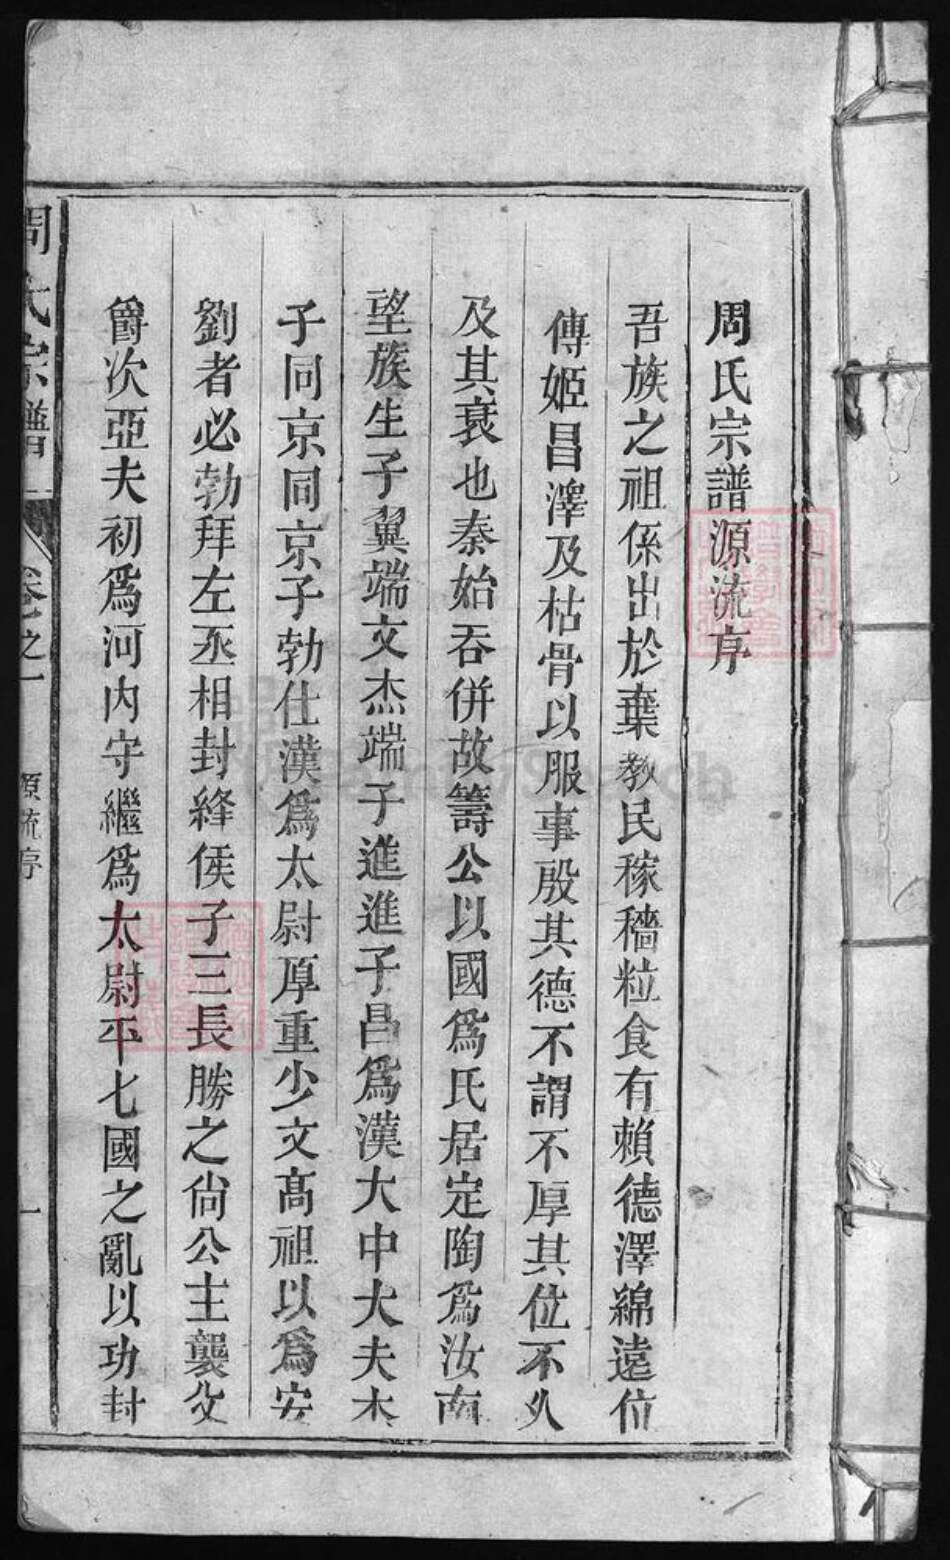 周氏宗譜源流序
吾族之祖係出於棄教民稼穡粒食有賴德澤綿遠位
傳姬昌澤及枯骨以服事殷其德不謂不厚其位不久
及其衰也秦始吞併故籌公以國爲氏居定陶爲汝南
望族生子翼端文杰端子進進子昌爲漢大中大夫木
子同京同京子勃仕漢爲太尉厚重少文高祖以爲安
劉者必勃拜左丞相封絳侯子三長勝之尙公主襲父
爵次亞夫初爲河內守繼爲太尉平七國之亂以功封
周氏宗譜
卷之一
源流序
一
FamilySearch